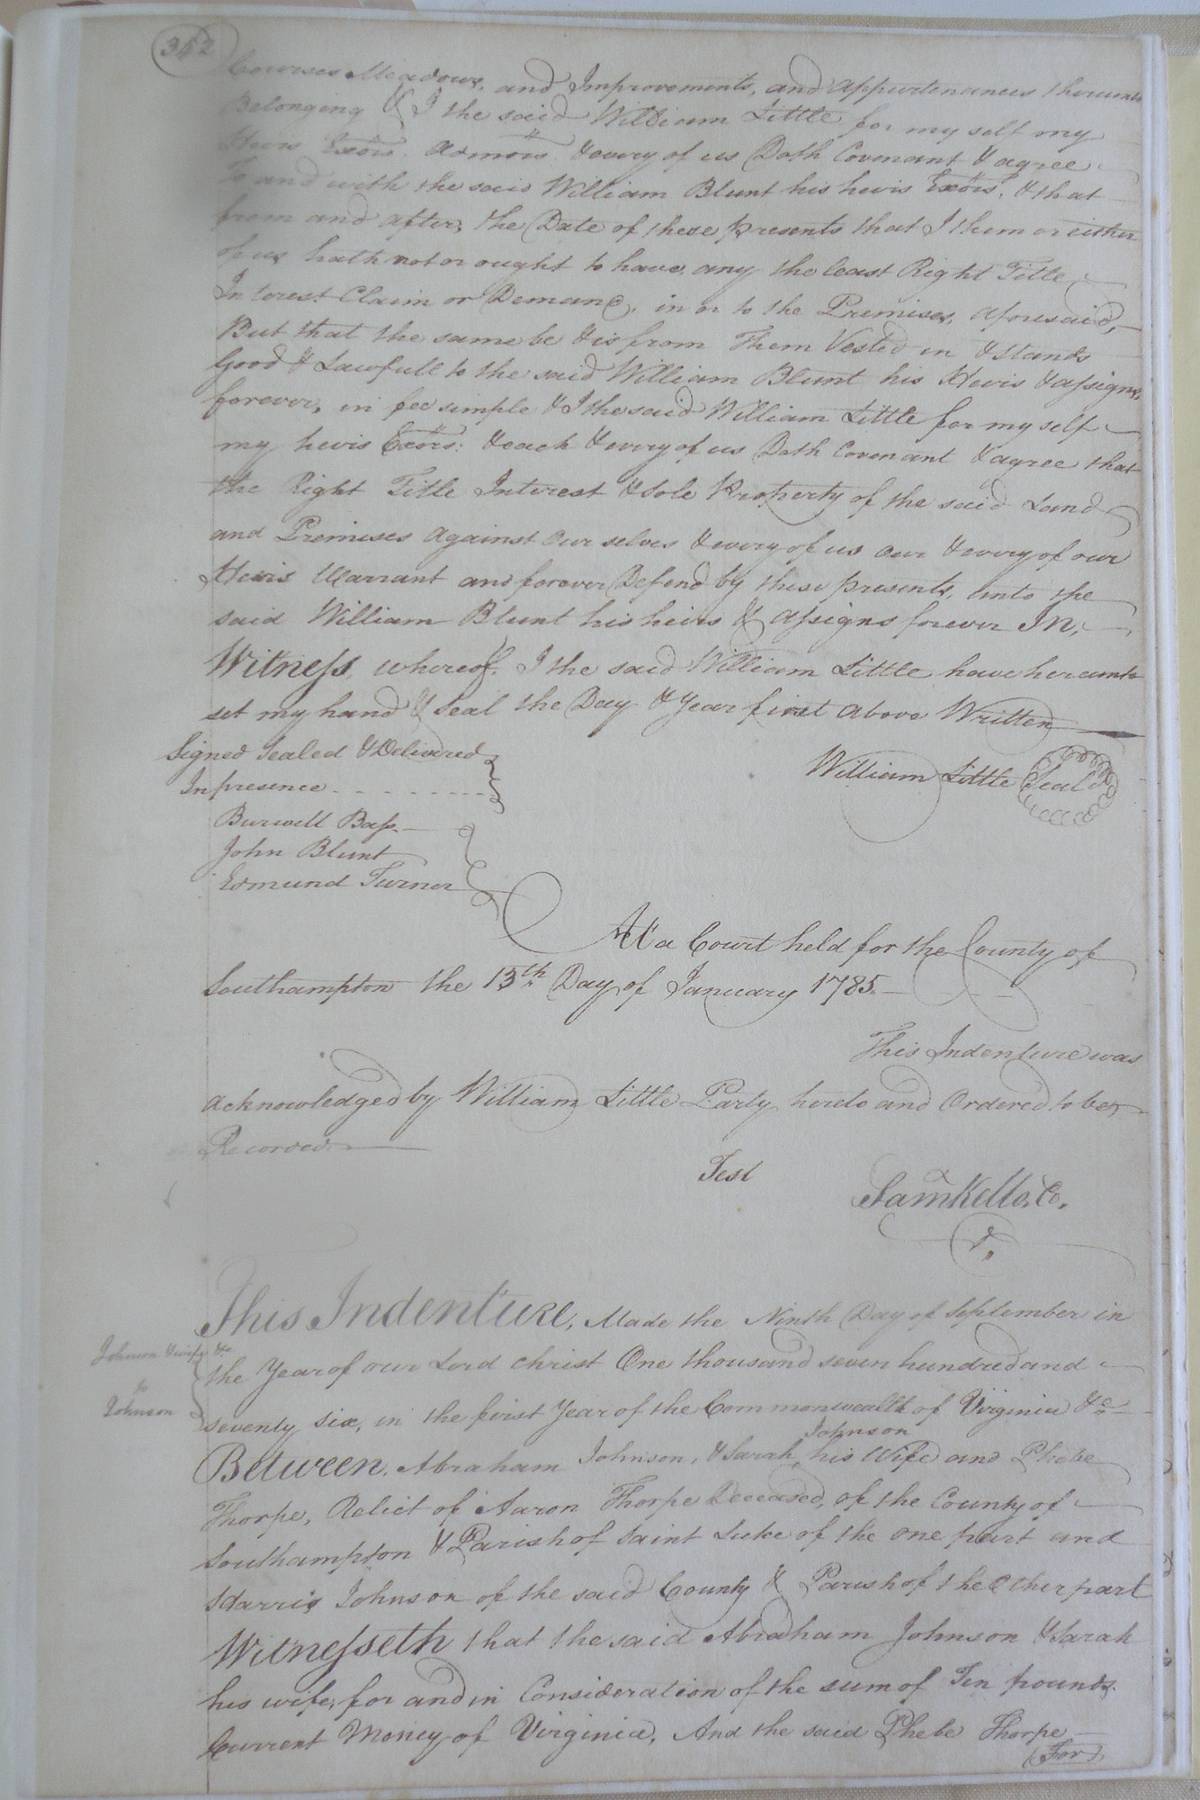 342
Courses Meadows, and Improvements, and appurtenances thereunto
Belonging & I the said William Little for my self my
Heirs Exōrs. admōrs. & every of us Doth Covenant & agree
To and with the said William Blunt his heirs Exōrs. & that
from and after, the Date of these presents that I them or either
of us hath not or ought to have, any the least Right Title
Interest Claim or Demand, in or to the Premises, aforesaid,
But that the same be & is from Them Vested in & stands
Good & Lawfull to the said William Blunt his Heirs & assigns,
forever, in fee simple & I the said William Little for my self
my heirs Exōrs: & each & every of us Doth Covenant & agree that
the Right Title Interest & Sole Property of the said Land
and Premises against Our selves & every of us our & every of our
Heirs Warrant and forever Defend by these presents, unto the
said William Blunt his heirs & assigns forever IN,
Witness, whereof, I the said William Little have hereunto
set my hand & Seal the Day & Year first above Written
Signed Sealed & Delivered
In presence
William Little Seal
Burwell Bass.
John Blunt
Edmund Turner
At a Court held for the County of
Southampton the 13th Day of January 1785.
This Indenture was
acknowledged by William Little Party hereto and Ordered to be
Recorded
Test
Sam Kello, Co,
This Indenture, Made the Ninth Day of September in
Johnson & wife &c
the Year of our Lord Christ One thousand seven hundred and
to
Johnson
seventy six, in the first Year of the Commonwealth of Virginia &c
Johnson
Between, Abraham Johnson, & Sarah, his Wife and Phebe
Thorpe, Relict of Aaron Thorpe Deceased, of the County of
Southampton & Parish of Saint Luke of the one part and
Harris Johnson of the said County & Parish of the Other part
Witnesseth that the said Abraham Johnson & Sarah
his wife, for and in Consideration of the sum of Ten pounds.
Current Money of Virginia, And the said Phebe Thorpe
(For)